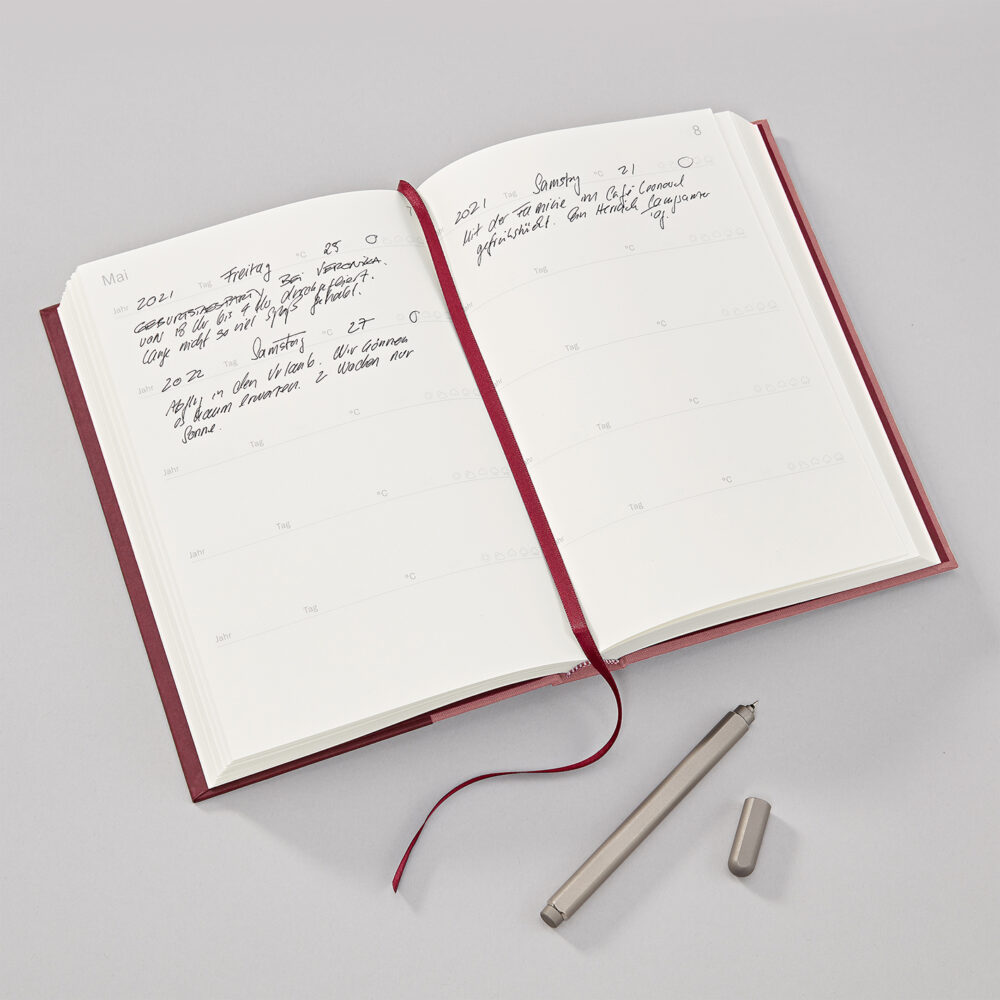 Mai
7
Jahr 2021 Tag Freitag 25 °C
GEBURTSTAGSPARTY BEI VERONIKA.
von 18 Uhr bis 4 Uhr durchgefeiert.
Lange nicht so viel Spaß gehabt.
Jahr 2022 Tag Samstag 27 °C
Abflug in den Urlaub. Wir können
es kaum erwarten. 2 Wochen nur
Sonne.
Jahr Tag °C
Jahr Tag °C
Jahr Tag °C
8
2021 Tag Samstag 21 °C
Mit der Familie im Café Leonard
gefrühstückt. Ein Herrlich Langsamer
Tag.
°C
Tag °C
Tag °C
Tag °C